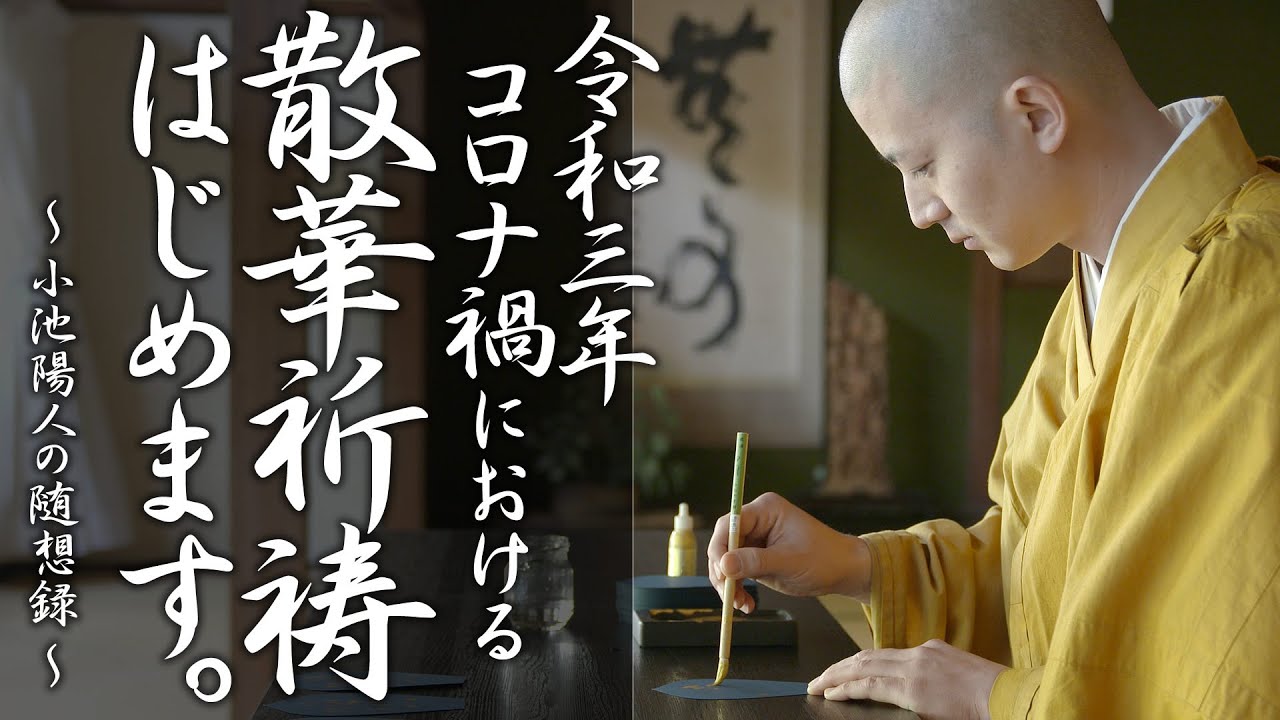 令和三年
コロナ禍における
散華祈祷
はじめます。
～小池陽人の随想録～